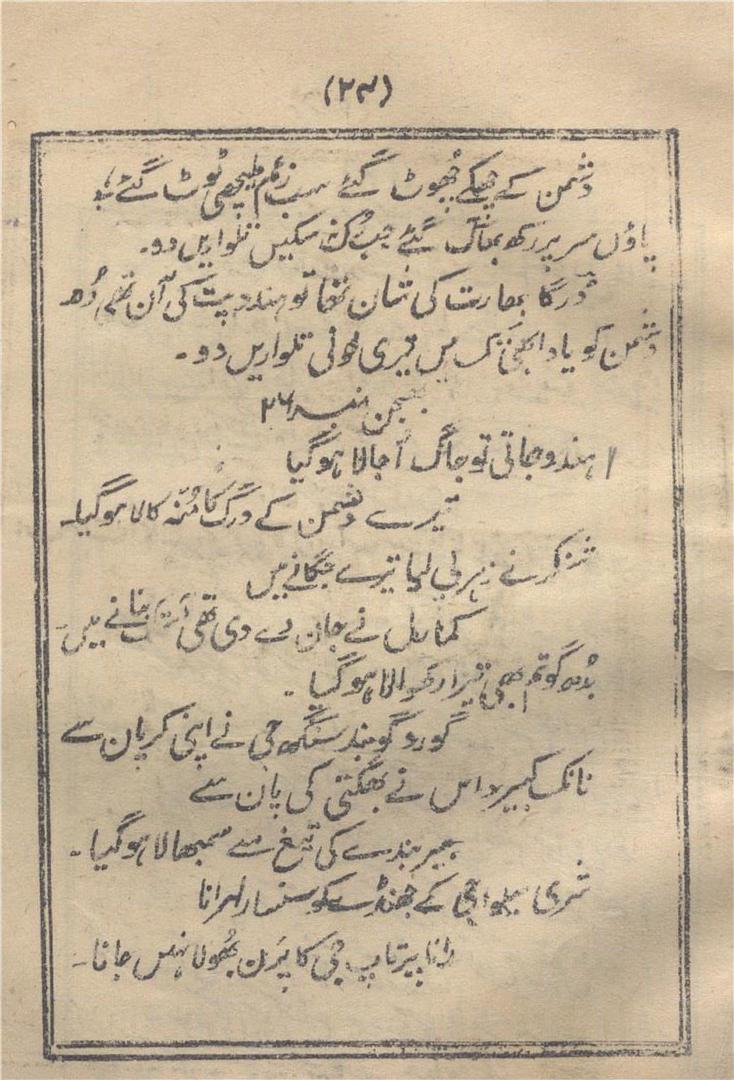 (۲۷)
دشمن کے چھکے چھوٹ گئے سب زعم ٹوٹ گئے
پاؤں سر پر رکھ بھاگ گئے جب رک نہ سکیں تلواریں دو۔
دُرگا بھارت کی شان تھا تو ہندو پت کی آن تھا
دشمن کو یاد ابھی تک ہیں تیری خونی تلواریں دو۔
بھجن نمبر ۲۶
ہندو جاتی تو جاگ اُجالا ہو گیا
تیرے دشمن کے مُنہ کالا ہو گیا۔
شنکر نے زہر پی لیا تیرے جگانے میں
کمارل نے جان دے دی تھی بنانے میں۔
بُدھ گوتم بھی تیرا رکھوالا ہو گیا۔
گورو گوبند سنگھ جی نے اپنی کرپان سے
نانک کبیر داس نے بھگتی کی پان سے
بیر بندے کی تیغ سے سمبھالا ہو گیا۔
شری سیوا جی کے جھنڈے کو سنسار لہرانا
رانا پرتاپ جی کا پَرن بھُولا نہیں جانا۔